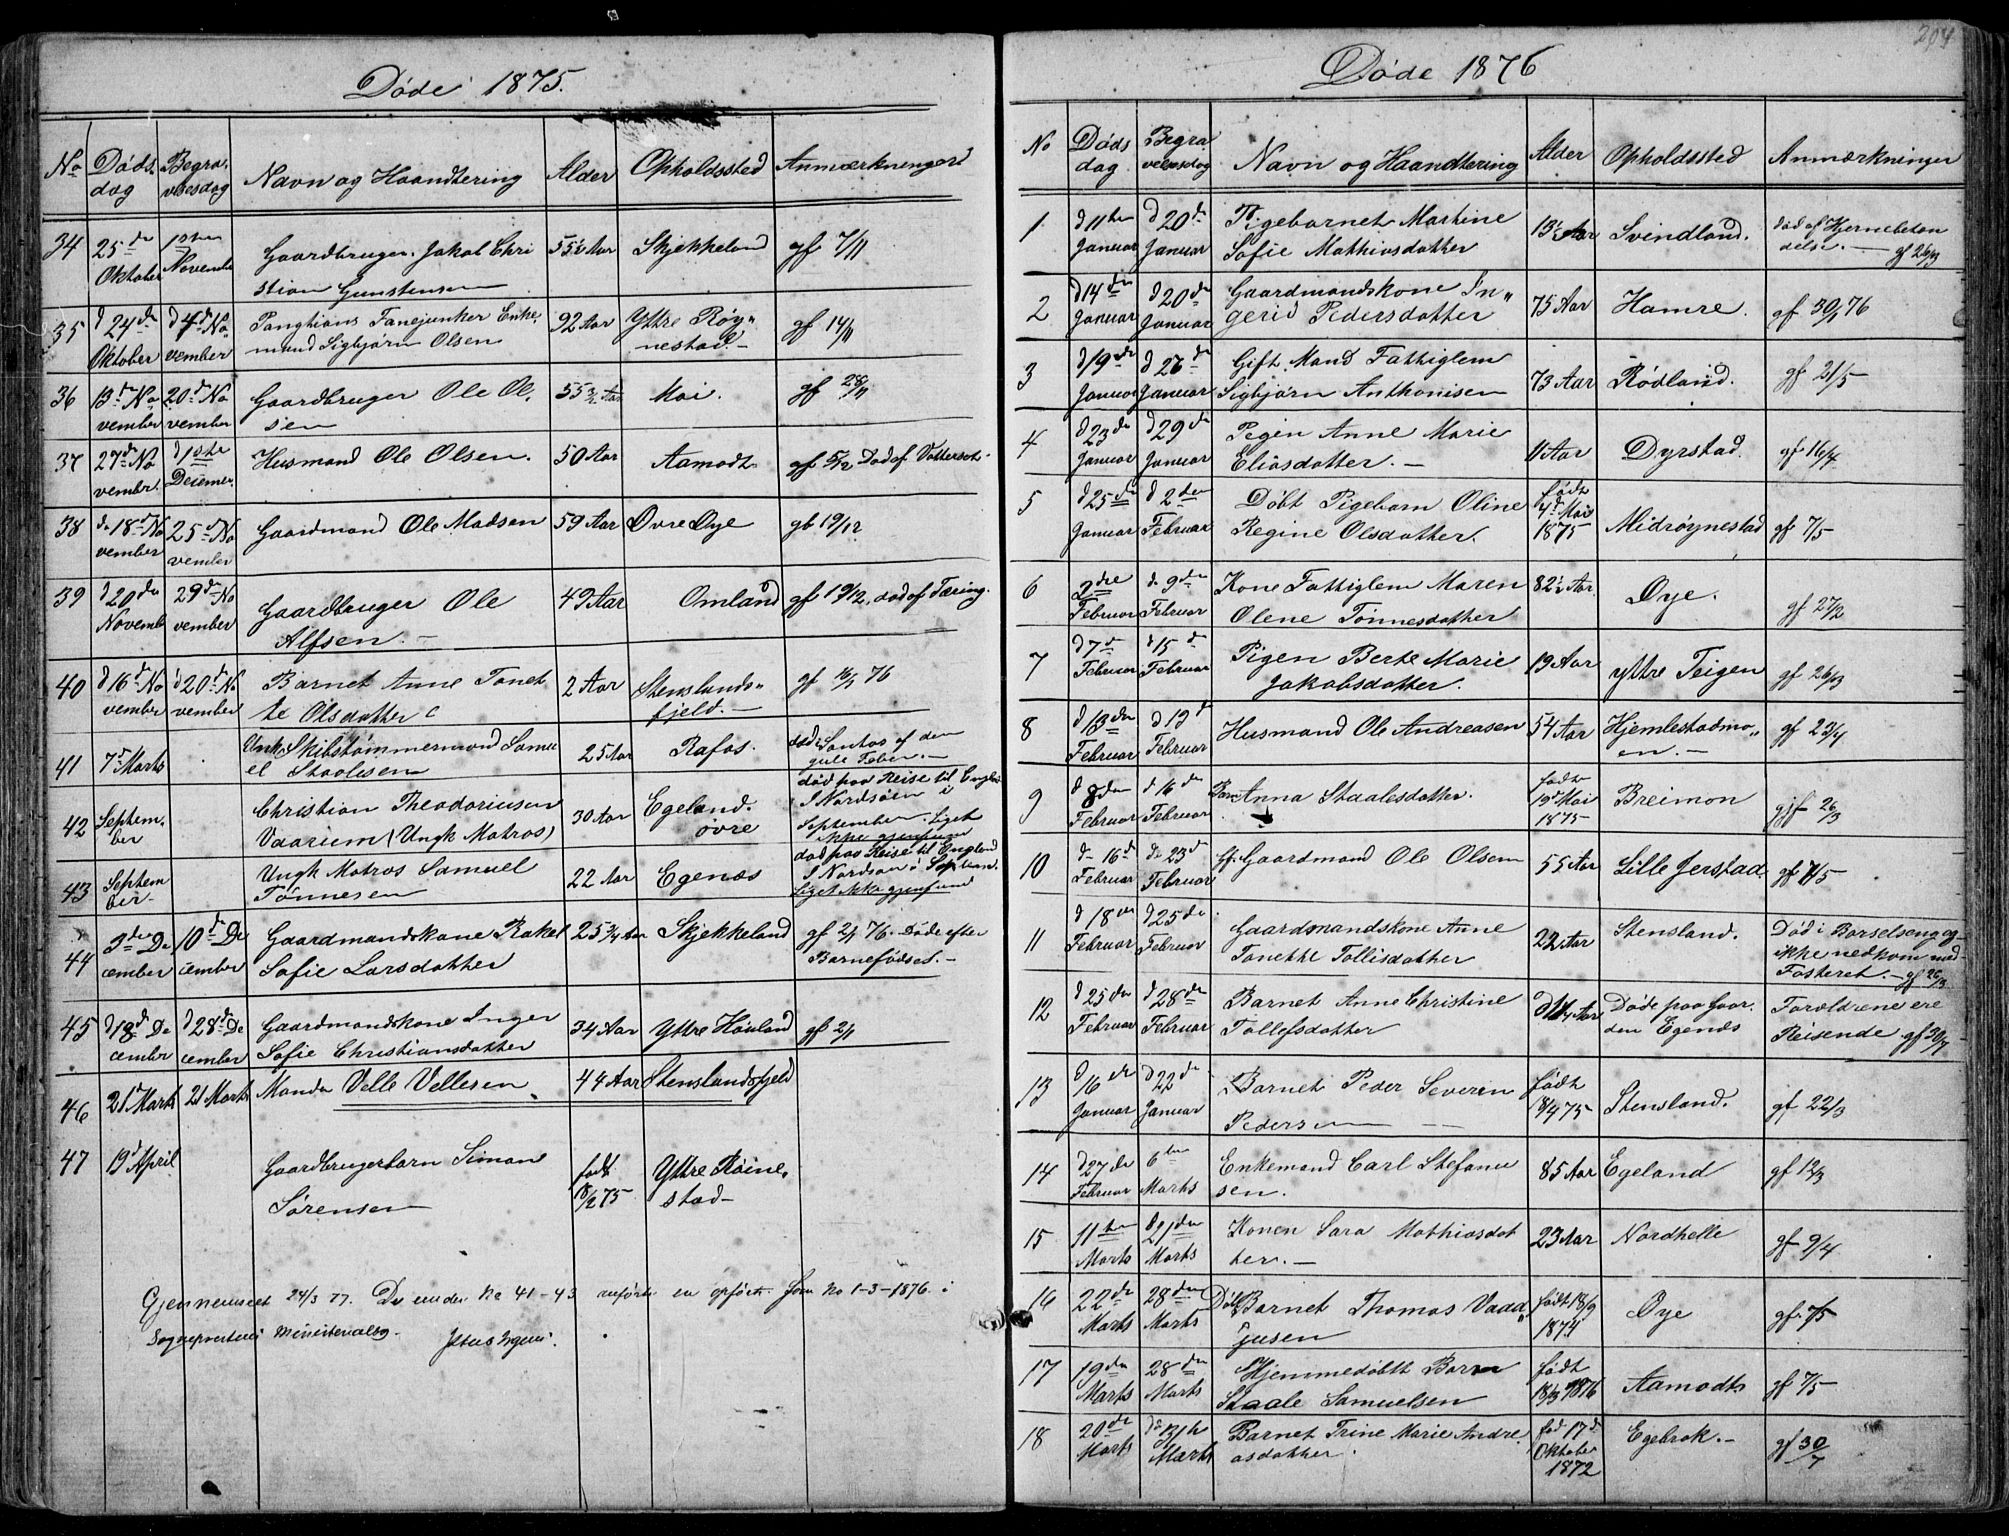 Døde 1875.
No Døds dag Begra velsesdag Navn og Haandtering Alder Opholdssted Anmærkninger
34 25de Oktober 1ste Novembe Gaardbruger Jakob Chri 55½ Aar Skjekkeland gf 7/11
stian Gunstensen
35 d 24de Oktober d 4de No vember Tanejunker Enke 92 Aar Yttre Røy„ nestad. gf 14/11
mand Sigbjørn Olsen
36 13de No vember 20de No vember Gaardbruger Ole Ol Aar Moi. gf 28/11
sen
37 27de No vember. d 1ste Husmand Ole Olsen. 50 Aar Aamodt gf 5/12 Død af
38 d. 18de No vember 25de No vember Gaardmand Ole Madsen 59 Aar Øvre Øye gb 19/12
39 d 20de Novemb 29de No vember Gaardbruger Ole 49 Aar Omland gf 19/12, død af Tæring.
Alfsen.
40 d 16de No vember d 20de No vember Barnet Anne Tonet 2 Aar Stenslands„ fjeld. gf 76
te Olsdatter
41 7de Marts Ungk. Skibstømmermand Samu 25 Aar Rafos. død i Santos af den
el Staalesen gule Feber.
42 Septem ber Christian Theodoriusen 30 Aar Egeland øvre død paa Reise til Engla
Vaarium (Ungk Matros) I Nordsøen i September. Liget ikke gjenfund
43 Septem ber Ungk Matros Samuel 22 Aar Egenæs død paa Reise til England
Tønnesen I Nordsøen i Septem. Liget ikke gjenfund
44 De cember 10de De cember Gaardmandskone Rakel 25¾ Aar Skjekkeland gf 2/1 76. Døde efter
Sofie Larsdatter Barnefødsel.
45 d 18de De cember d 28de De cember Gaardmandskone Inger 34 Aar Yttre gf 2/1
Sofie Christiansdatter
46 21de Marts 21 Marts Velle Vellesen 44 Aar Stenslandsfjeld
47 19de April Gaardbrugerbarn Simon født 18/2 75 Yttre Røine stad
Sørensen
Gjennemseet 24/3 77. De under No 41-43 anførte opført No 1-3-1876 i
Ministerialbog.
204
Døde 1876
No Døds dag Begra velsesdag Navn og Haandtering Alder Opholdssted Anmærkninger
1 d 11te Januar d 20de Januar Pigebarnet Martine 13½ Aar Svindland. død af Hjernebeten
Sofie Mathiasdatter delse. gf 26/3
2 d 14de Januar d 20de Januar Gaardmandskone In„ 75 Aar Hamre. gf 76
gerid Pedersdatter
3 d 19de Januar d 27de Januar Gift Mand Fattiglem 73 Aar Rødland. gf 21/5
Sigbjørn Anthonisen
4 d 23de Januar d 29de Januar Pigen Anne Marie Aar Dyrstad. gf 16/4
Eliasdatter.
5 d 25de Januar d 2den Februar Døbt Pigebarn Oline født 4de Mai 1875 Midrøynestad gf 7/5
Regine Olsdatter.
6 2den Februar d. 9de Februar Kone Fattiglem Maren 82½ Aar Øye. gf 27/2
Olene Tønnesdatter
7 d 7de Februar d 15de Februar Pigen Berte Marie 19 Aar yttre Teigen gf 26/3
Jakobsdatter.
8 d 13de Februar d 19de Februar Husmand Ole Andreasen 54 Aar Hjemlestadmo„ en. gf 23/4
9 d 8den Februar d 16de Februar Barn Anna Staalesdatter. født 19de Mai 1875 Breimon gf 26/3
10 d. 16de Februar d. 23de Februar Gf. Gaardmand Ole Olsen 55 Aar Lille Jerstad gf
11 d 18de Februar d 25de Februar Gaardsmandskone Anne 22 Aar Stensland. Død i Barselseng og
Tonette Tollisdatter ikke nedkom med
Fosteret. gf 26/3
12 d 25de Februar d 28de Februar Barnet Anne Christine Aar Døde paa Gaar den Egenæs Foreldrene ere
Tollefsdatter Reisende gf 30/7
13 d 16de Januar d 22de Januar Barnet Peder Severin født 8/4 75 Stensland. gf 22/3
Pedersen
14 d 27de Februar 6te Marts Enkemand Carl Stefanu 85 Aar Egeland gf 12/3
sen.
15 11te Marts d 21de Marts Konen Sara Mathiasdat 23 Aar Nordhelle gf 9/4
ter.
16 22de Marts 28de Marts Døbt Barnet Thomas Vaad„ født 18/9 1874 Øye gf 7/5
jusen
17 19de Marts 28de Marts Hjemmedøbt Barn født 18/3 1876 Aamodt gf 7/5
Staale Samuelsen
18 20de Marts Marts Barnet Trine Marie Andre fød 17de Oktober 1872 Egebrok. gf 30/7
asdatter.